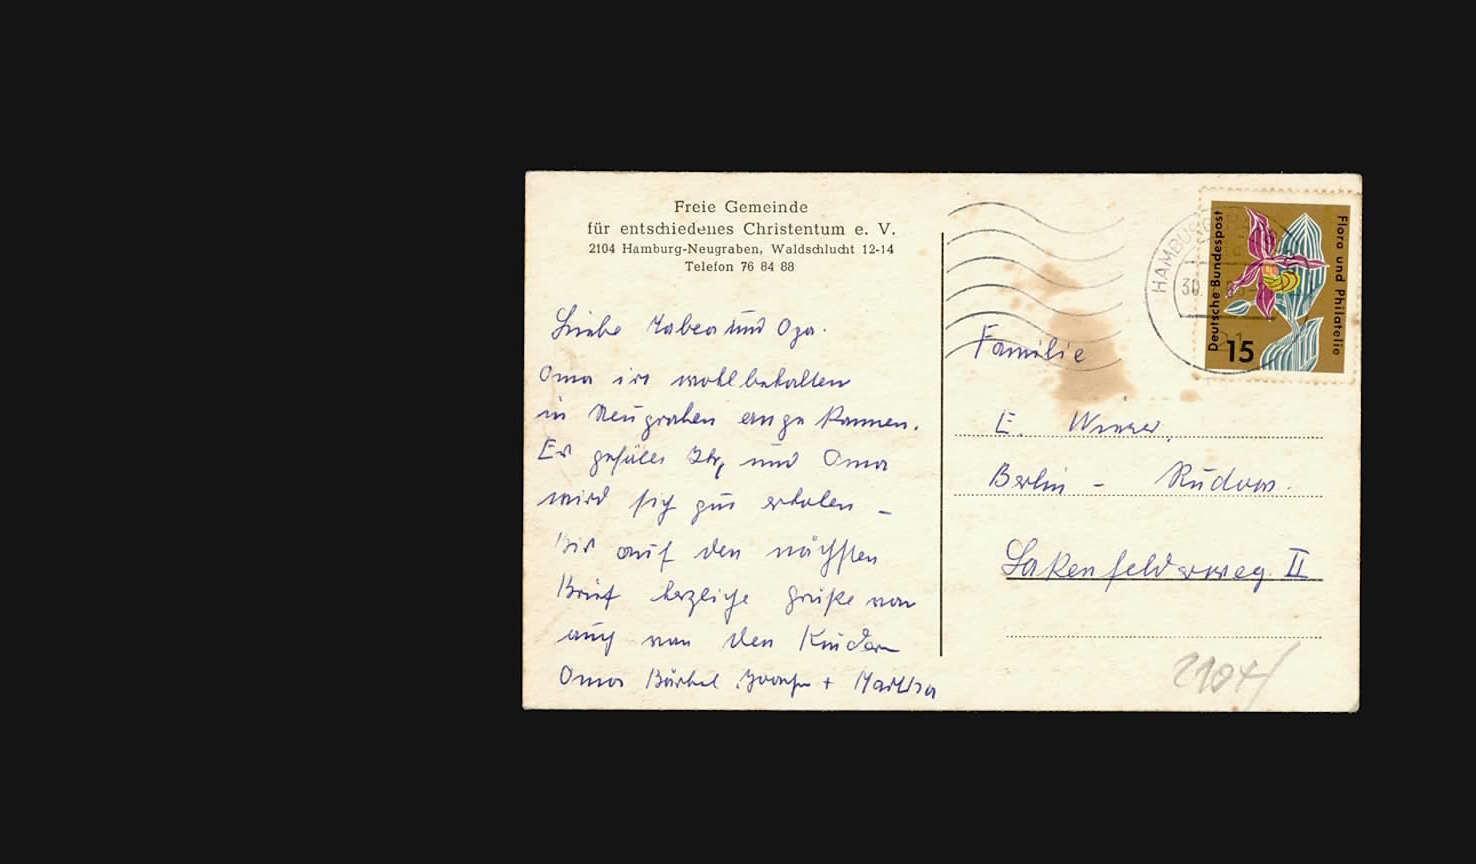 Freie Gemeinde
für entschiedenes Christentum e. V.
2104 Hamburg-Neugraben, Waldschlucht 12-14
Telefon 76 84 88
Liebe Tabea und Opa.
Oma ist wohlbehalten
in Neugraben angekommen.
Es gefällt Ihr, und Oma
wird sich gut erholen –
Bis auf den nächsten
Brief herzliche Grüße von
auch von den Kindern
Oma Bärbel + Martha
HAMBURG
30.
21
Deutsche Bundespost
Flora und Philatelie
15
Familie
E.
Berlin - Rudow.
Lakenfelderweg. II
2104/